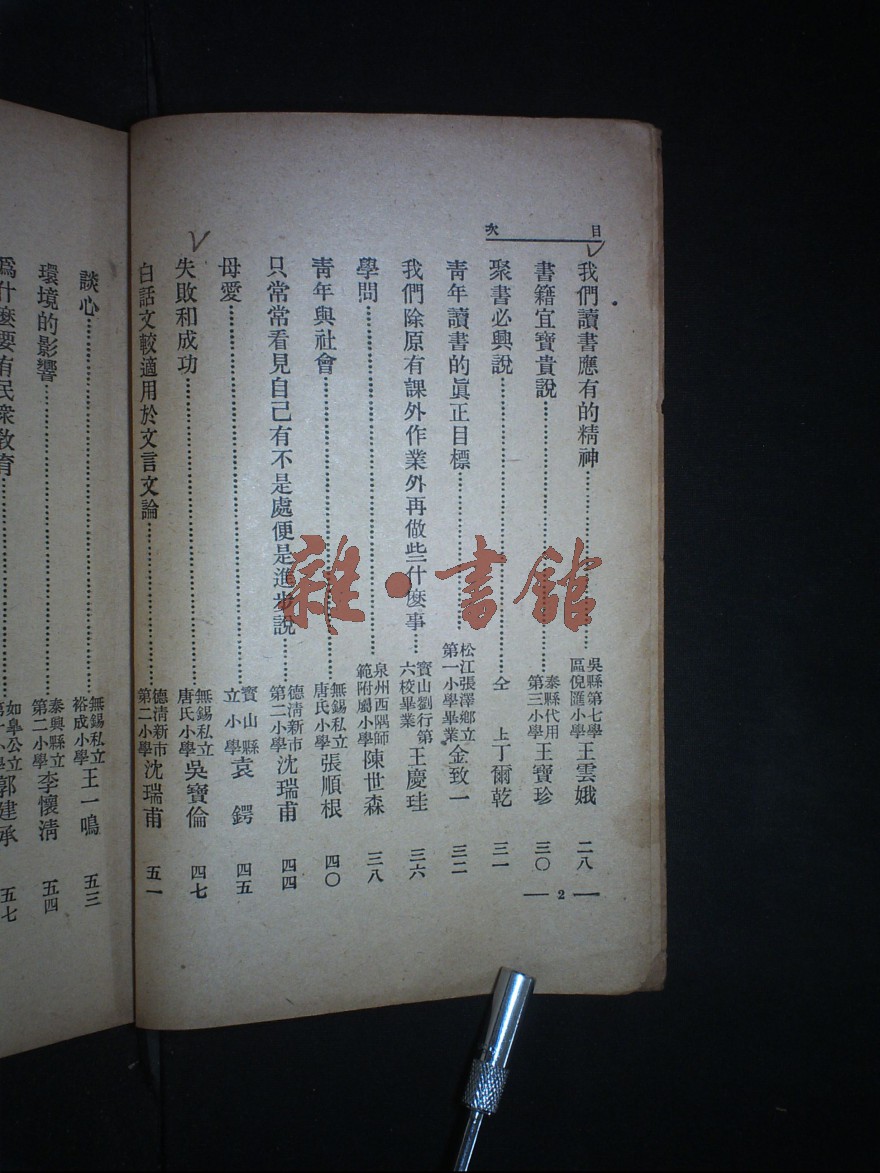 目次
我們讀書應有的精神……吳縣第七學區倪匯小學王雲娥 二八
書籍宜寶貴說……泰縣代用第三小學王寶珍 三〇
聚書必興說……仝上丁爾乾 三一
靑年讀書的眞正目標……松江張澤鄉立第一小學畢業金致一 三二
我們除原有課外作業外再做些什麼事……寶山劉行第六校畢業王慶珪 三六
學問……泉州西隅師範附屬小學陳世森 三八
靑年與社會……無錫私立唐氏小學張順根 四〇
只常常看見自己有不是處便是進步說……德淸新市第二小學沈瑞甫 四四
母愛……寶山縣立小學袁鍔 四五
失敗和成功……無錫私立唐氏小學吳寶倫 四七
白話文較適用於文言文論……德淸新市第二小學沈瑞甫 五一
2
談心……無錫私立裕成小學王一鳴 五三
環境的影響……泰興縣立第二小學李懷淸 五四
爲什麼要有民衆敎育……如皋公立第十小學郭建承 五七
雜·書館